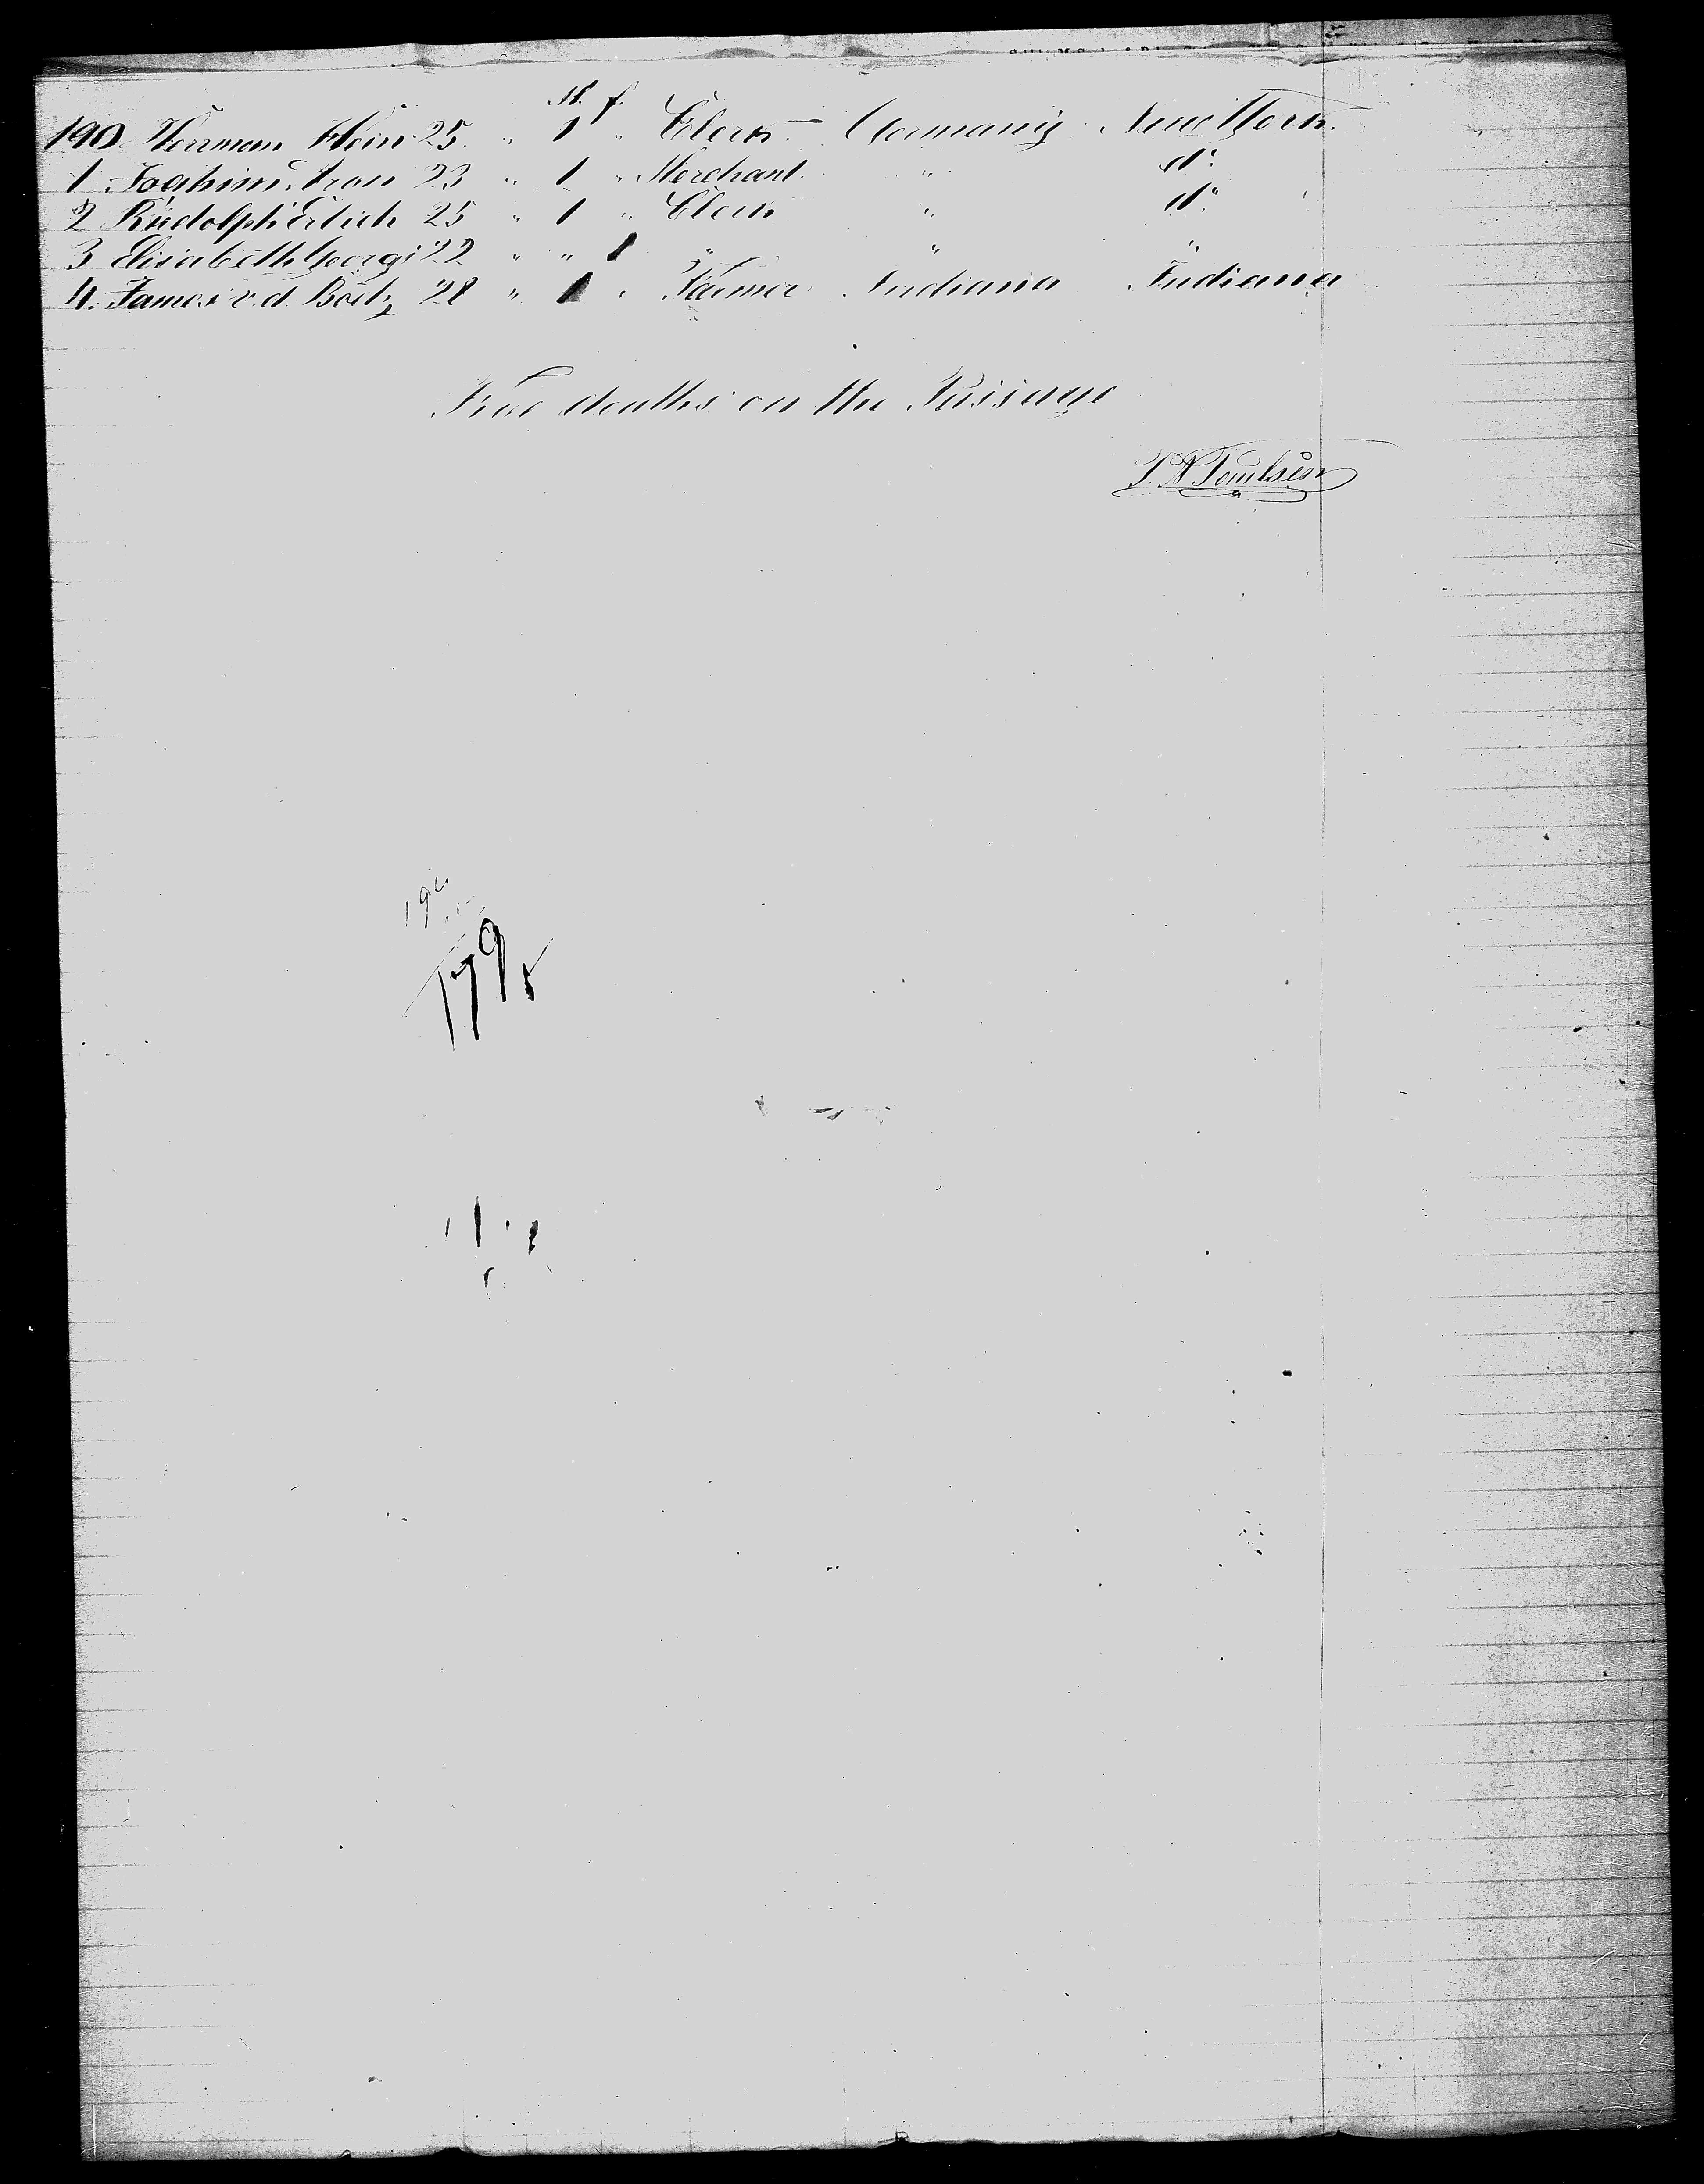 M. f.
190. Herrman Hein 25. " 1 " Clerk. Germany New York.
1 Joahim Aron 23 " 1 " Merchant. " do.
2 Rudolph Erlich 25 " 1 " Clerk " do.
3 Elisabeth Georgi 22 " " 1 " " "
4. James v. d. 28 " 1 " Farmer Indiana Indiana
deaths on the Passage
179